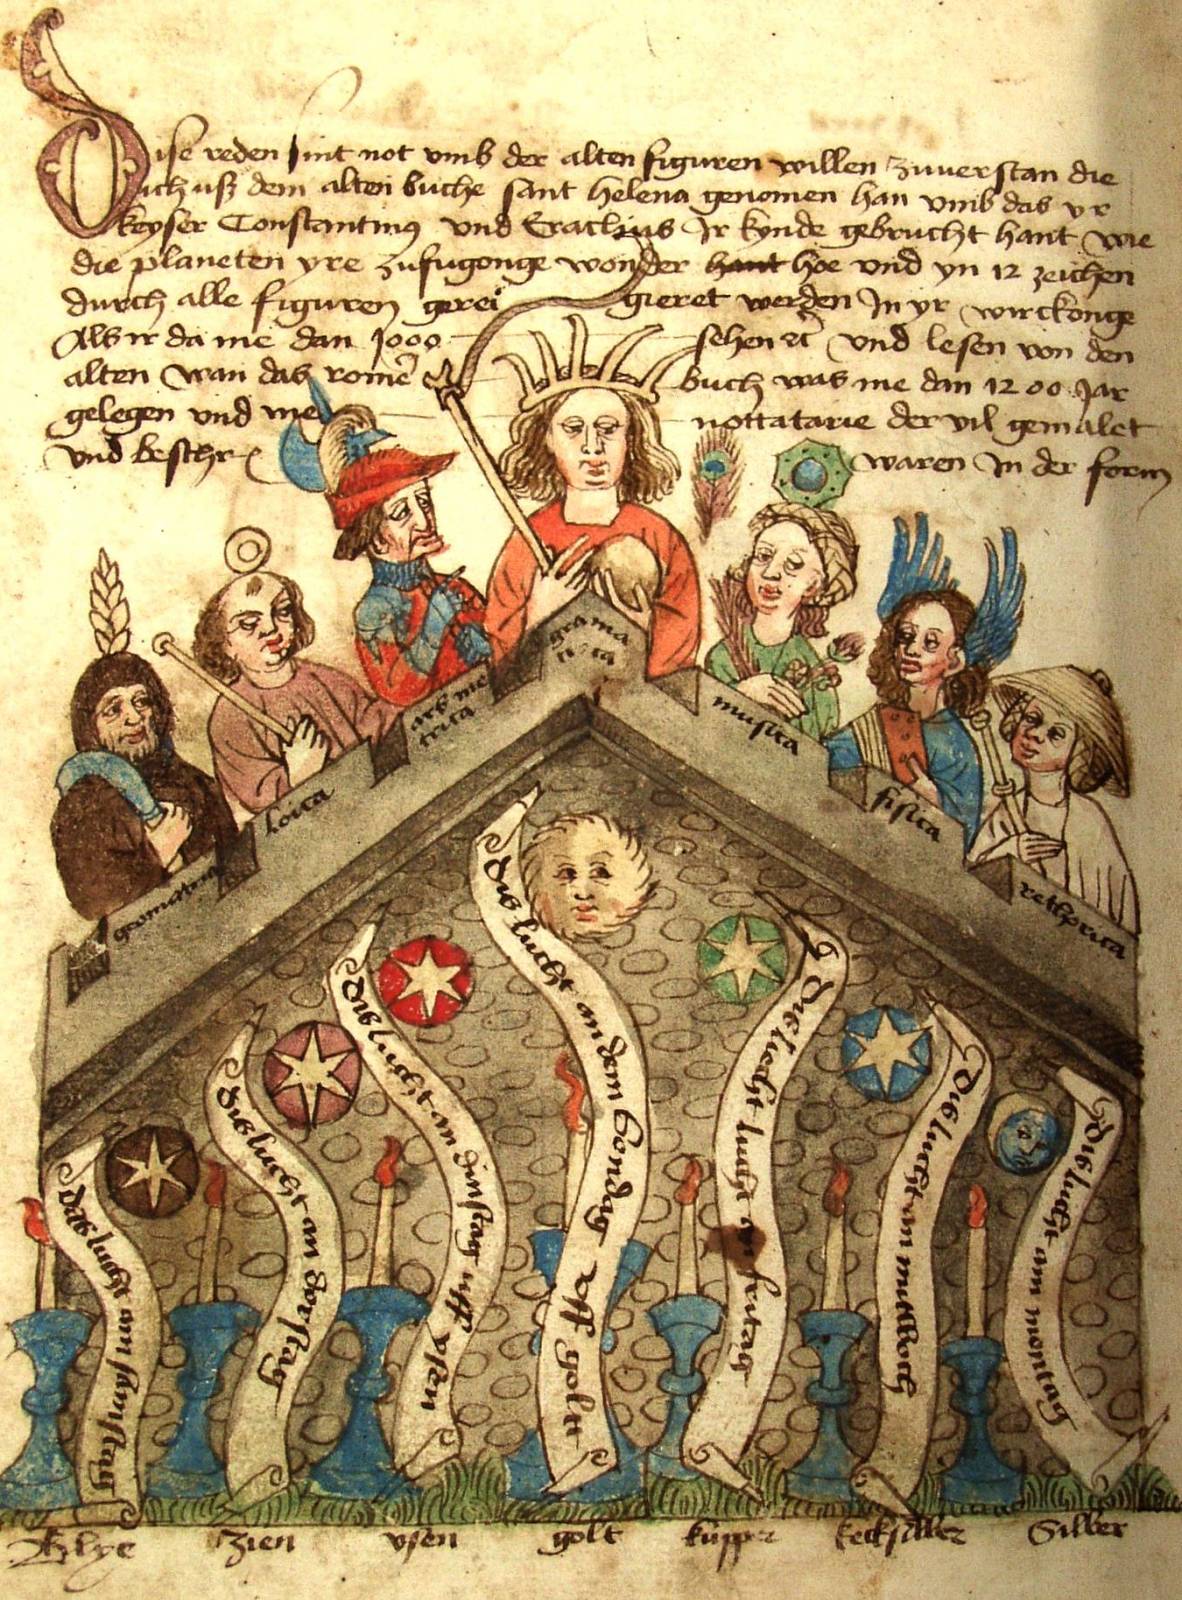 Dise reden sint not vmb der alten figuren willen zuuerstan die
ich uß dem alten buche sant Helena genomen han vmb das yr
keyser Constantinus vnd Eraclius Ir kynde gebrucht hant wie
die planeten yre zufugonge wonder hant hoe vnd yn 12 zeichen
durch alle figuren gerei gieret werden In yr wirckonge
Als ir da me dan 1000 sehen vnd lesen von den
alten wan das rome buch was me dan 1200 Jar
gelegen vnd me nottatarie der vil gemalet
vnd beschr waren In der form
grama
tica
ars me
trica
musica
loica
fisica
geometria
rethorica
Dis lucht an dem Sondag vff golt
Dis lucht an dinstag uff ysen
Die lucht an fritag
Dis lucht an dorstag
Dis lucht an mitwoch
Das lucht am samstag
Dis lucht am montag
Blye Zien ysen golt kupper kecksilber Silber